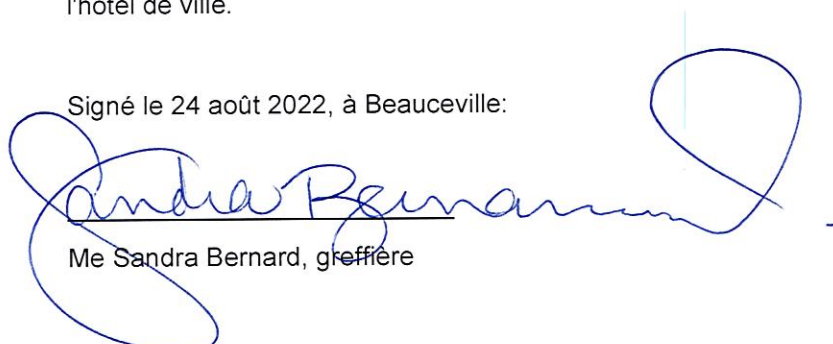 l'hôtel de ville.
Signé le 24 août 2022, à Beauceville:
Sandra Bernard
Me Sandra Bernard, greffière